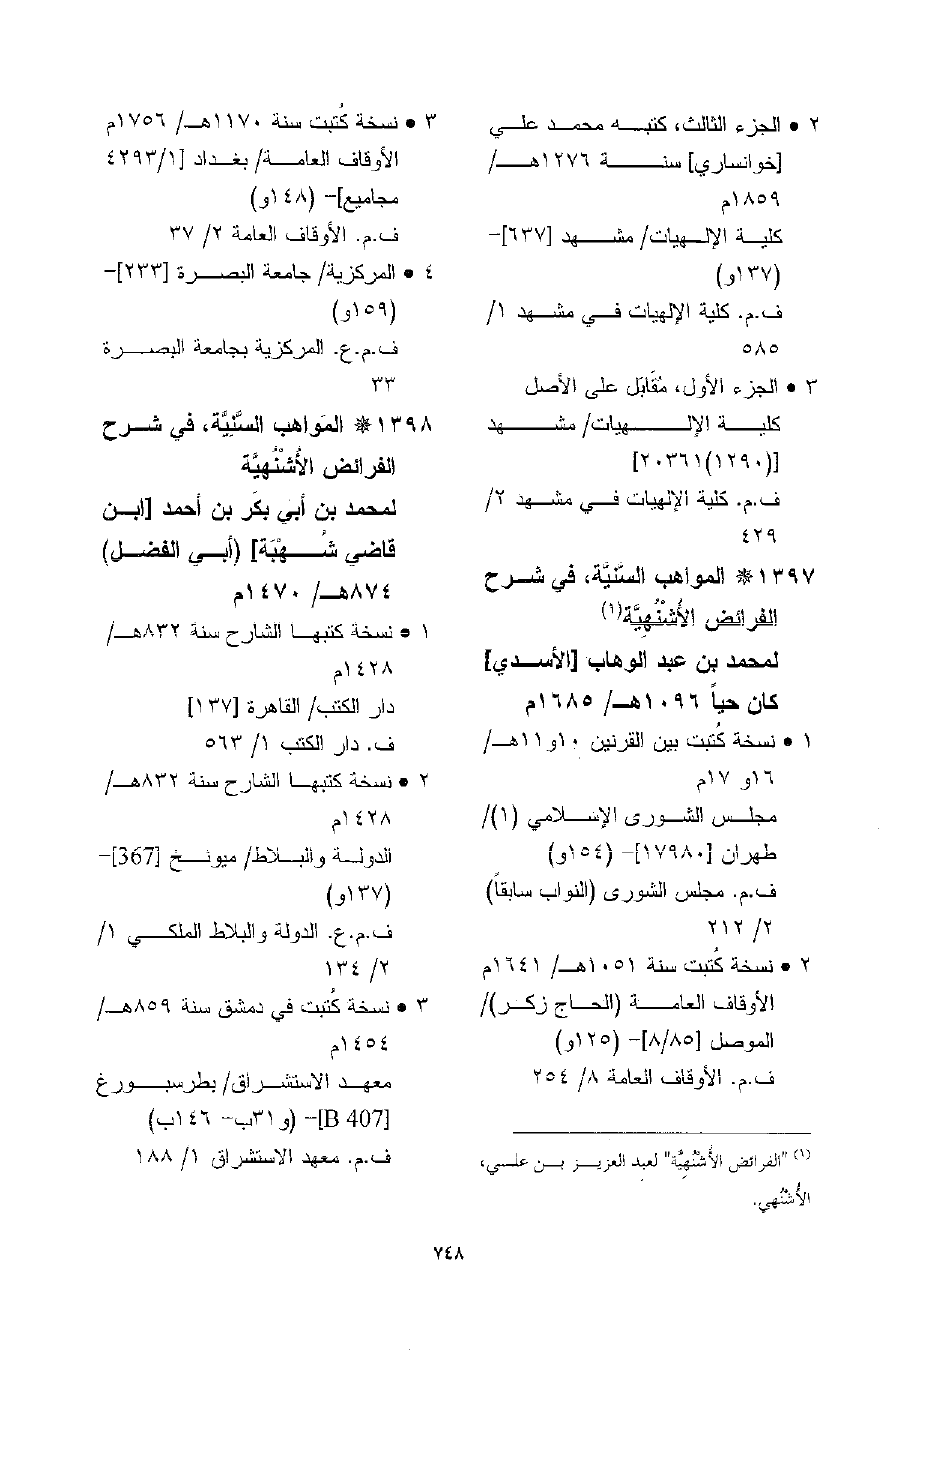 ٢ • الجزء الثالث، كتبه محمد علي
[خوانساري] سنة ١٢٧٦هـ/
١٨٥٩م
كلية الإلهيات/ مشهد [٦٣٧]-
(١٣٧و)
ف.م. كلية الإلهيات في مشهد ١/
٥٨٥
٣ • الجزء الأول، مُقَابَل على الأصل
كلية الإلهيات/ مشهد
[(١٢٩٠)٢٠٣٦١]
ف.م. كلية الإلهيات في مشهد ٢/
٤٢٩
١٣٩٧ * المواهب السَّنيَّة، في شرح
الفرائض الأُشْنُهِيَّة(١)
لمحمد بن عبد الوهاب [الأسدي]
كان حياً ١٠٩٦هـ/ ١٦٨٥م
١ • نسخة كُتبت بين القرنين ١٠و١١هـ/
١٦و ١٧م
مجلس الشورى الإسلامي (١)/
طهران [١٧٩٨٠]- (١٥٤و)
ف.م. مجلس الشورى (النواب سابقاً)
٢/ ٢١٢
٢ • نسخة كُتبت سنة ١٠٥١هـ/ ١٦٤١م
الأوقاف العامة (الحاج زكر)/
الموصل [٨/٨٥]- (١٢٥و)
ف.م. الأوقاف العامة ٨/ ٢٥٤
(١) "الفرائض الأُشْنُهِيَّة" لعبد العزيز بن علي،
الأُشْنُهي.
٣ • نسخة كُتبت سنة ١١٧٠هـ/ ١٧٥٦م
الأوقاف العامة/ بغداد [٤٢٩٣/١
مجاميع]- (١٤٨و)
ف.م. الأوقاف العامة ٢/ ٣٧
٤ • المركزية/ جامعة البصرة [٢٣٣]-
(١٥٩و)
ف.م.ع. المركزية بجامعة البصرة
٣٣
١٣٩٨ * المَواهب السَّنِيَّة، في شرح
الفرائض الأُشْنُهيَّة
لمحمد بن أبي بكر بن أحمد [ابن
قاضي شُهْبَة] (أبي الفضل)
٨٧٤هـ/ ١٤٧٠م
١ • نسخة كتبها الشارح سنة ٨٣٢هـ/
١٤٢٨م
دار الكتب/ القاهرة [١٣٧]
ف. دار الكتب ١/ ٥٦٣
٢ • نسخة كتبها الشارح سنة ٨٣٢هـ/
١٤٢٨م
الدولة والبلاط/ ميونخ [367]-
(١٣٧و)
ف.م.ع. الدولة والبلاط الملكي ١/
٢/ ١٣٤
٣ • نسخة كُتبت في دمشق سنة ٨٥٩هـ/
١٤٥٤م
معهد الاستشراق/ بطرسبورغ
[B 407]- (و٣١ب- ١٤٦ب)
ف.م. معهد الاستشراق ١/ ١٨٨
٧٤٨